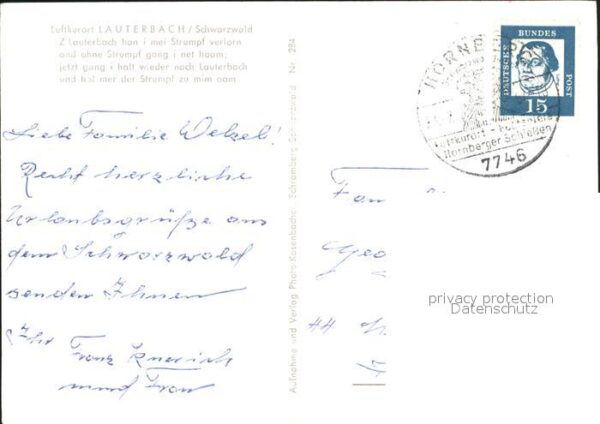 Luftkurort LAUTERBACH / Schwarzwald
Z'Lauterbach han i mei Strumpf verlorn
and ohne Strumpf gang i net haam;
jetzt gang i halt wieder nach Lauterbach
und hol mer der Strumpf zu mim aam.
Liebe Familie Welzel!
Recht herzliche
Urlaubsgrüße aus
dem Schwarzwald
senden Ihnen
Ihr Franz
und Frau
Aufnahme und Verlag Photo-Kasenbacher, Schramberg, Schwarzwald Nr. 294
DEUTSCHE BUNDES POST
15
HORNB
Luftkurort
Hornberger Schießen
7746
Fam
Geo
44
privacy protection
Datenschutz